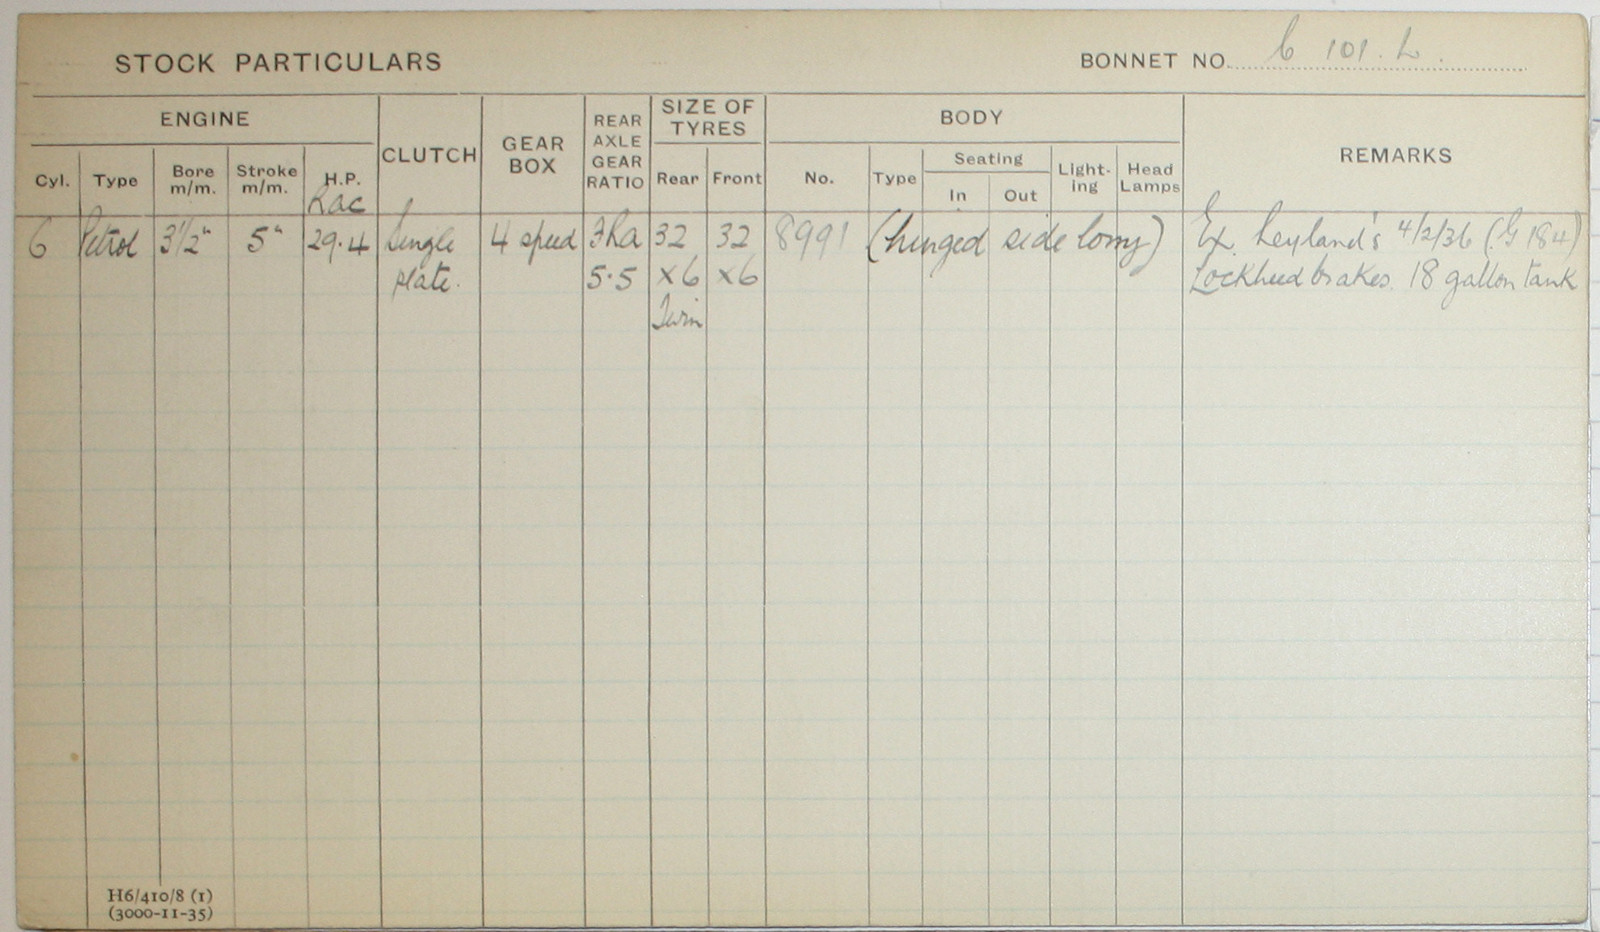 STOCK PARTICULARS
BONNET NO. C 101. L.
ENGINE
CLUTCH
GEAR BOX
REAR AXLE GEAR RATIO
SIZE OF TYRES
BODY
REMARKS
Cyl.
Type
Bore m/m.
Stroke m/m.
H.P.
Rac
Rear
Front
No.
Type
Seating
In
Out
Light-ing
Head Lamps
6 Petrol 3½" 5" 29.4 Single 4 speed 32 32 8991 (hinged side lorry) Ex. Leyland's 4/2/36 (G 184)
plate. 5.5 x6 x6 Lockheed brakes. 18 gallon tank
Twin
H6/410/8 (1)
(3000-11-35)